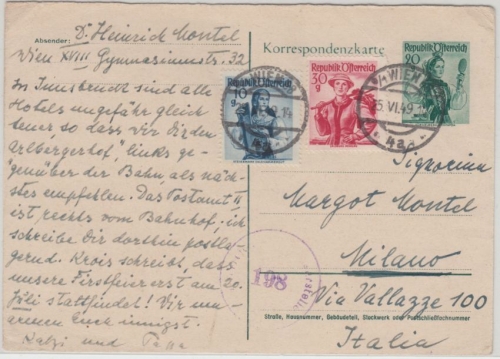 Absender: Dr Heinrich Montel
Wien XVIII Gymnasiumstr. 32
Korrespondenzkarte
In Innsbruck sind alle
Hotels ungefähr gleich
teuer, so dass wir Dir den
"Arlbergerhof", links ge-
genüber der Bahn, als näch-
stes empfehlen. Das Postamt II
ist rechts vom Bahnhof, ich
schreibe Dir dorthin postla-
gernd. Krois schreibt, dass
unsere Firstfeier erst am 20.
Juli stattfindet! Wir um-
armen Euch innigst.
und Papa
Republik Österreich
10 g
Republik Österreich
30 g
Republik Österreich
20
WIEN
WIEN
25.VI.49
198
Signorina
Margot Montel
Milano
Via Vallazze 100
Straße, Hausnummer, Gebäudeteil, Stockwerk oder Postschließfachnummer
Italia